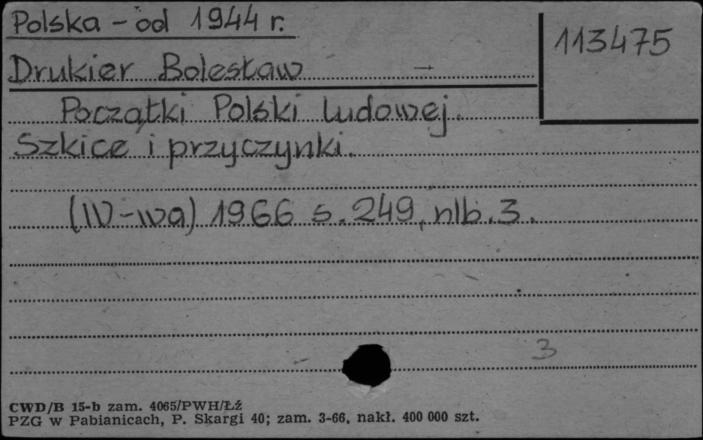 Polska - od 1944 r.
113475
Drukier Bolesław
Początki Polski Ludowej.
Szkice i przyczynki.
(W-wa) 1966 s. 249, nlb. 3.
3
CWD/B 15-b zam. 4065/PWH/Łź
PZG w Pabianicach, P. Skargi 40; zam. 3-66, nakł. 400 000 szt.